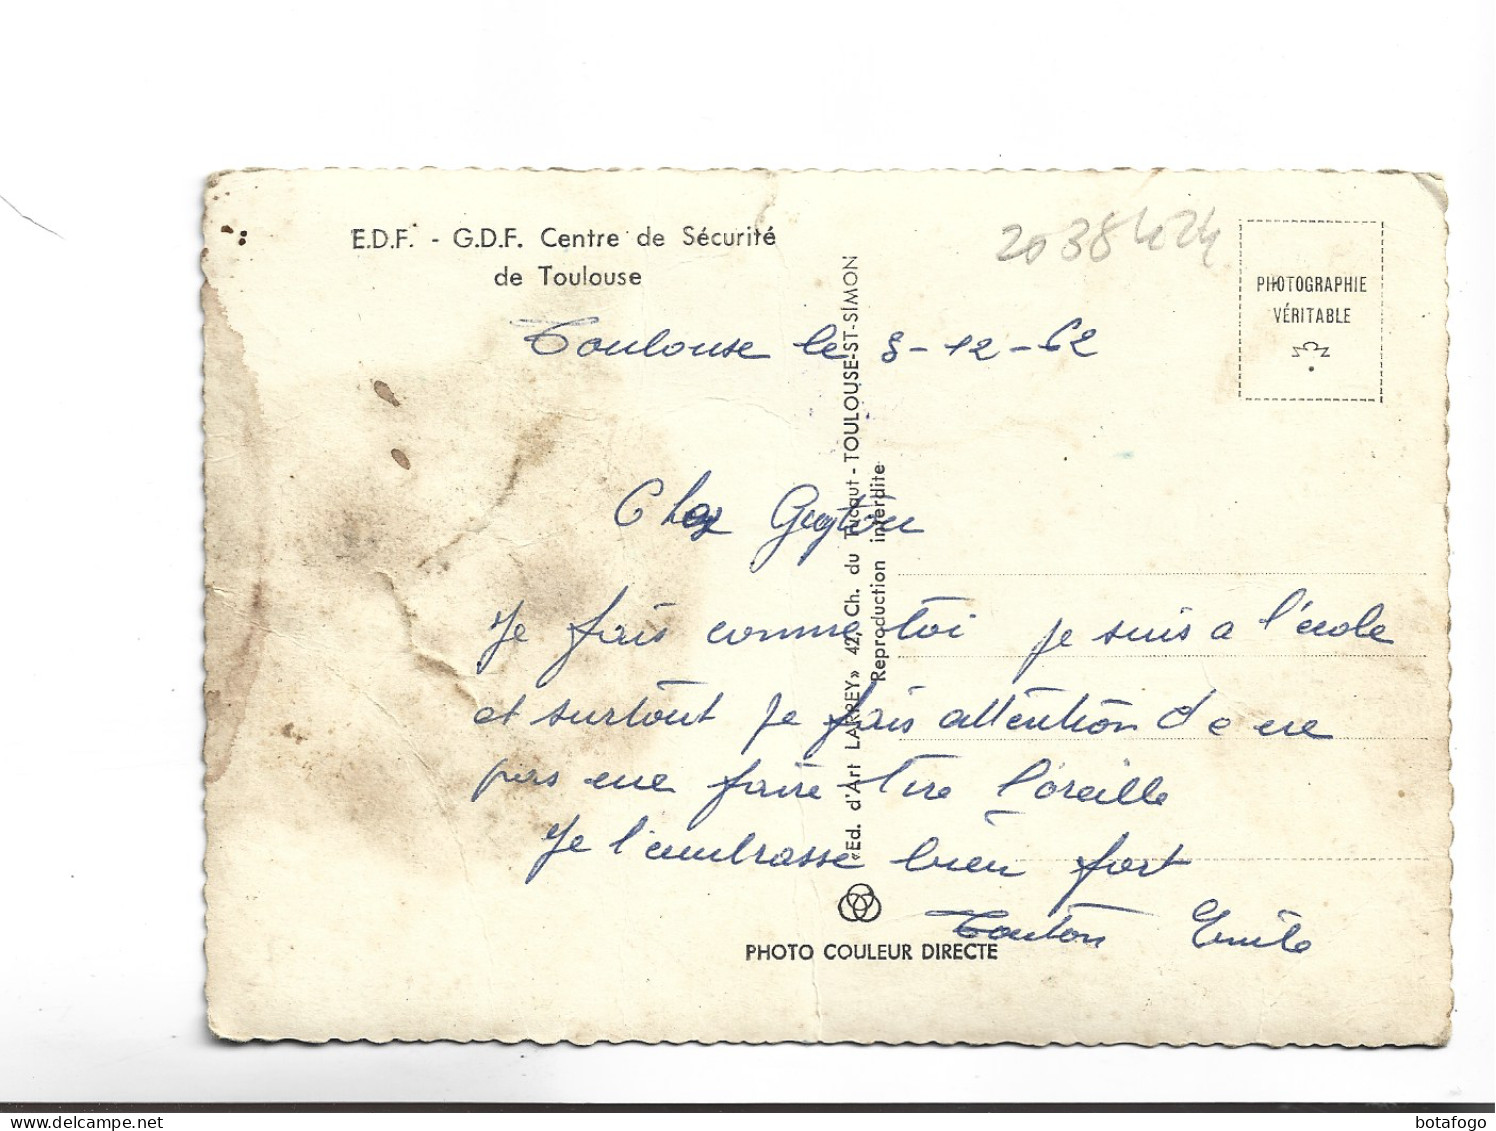 E.D.F. - G.D.F. Centre de Sécurité
de Toulouse
20 38 4024
PHOTOGRAPHIE
VÉRITABLE
Toulouse le 3-12-62
Cher
Je fais comme toi je suis a l'école
et surtout je fais attention de ne
pas me faire tire l'oreille
Je t'embrasse bien fort
Tonton Emile
«Ed. d'Art LARREY» 42, Ch. du Tucaut - TOULOUSE-ST-SIMON
Reproduction interdite
PHOTO COULEUR DIRECTE
botafogo